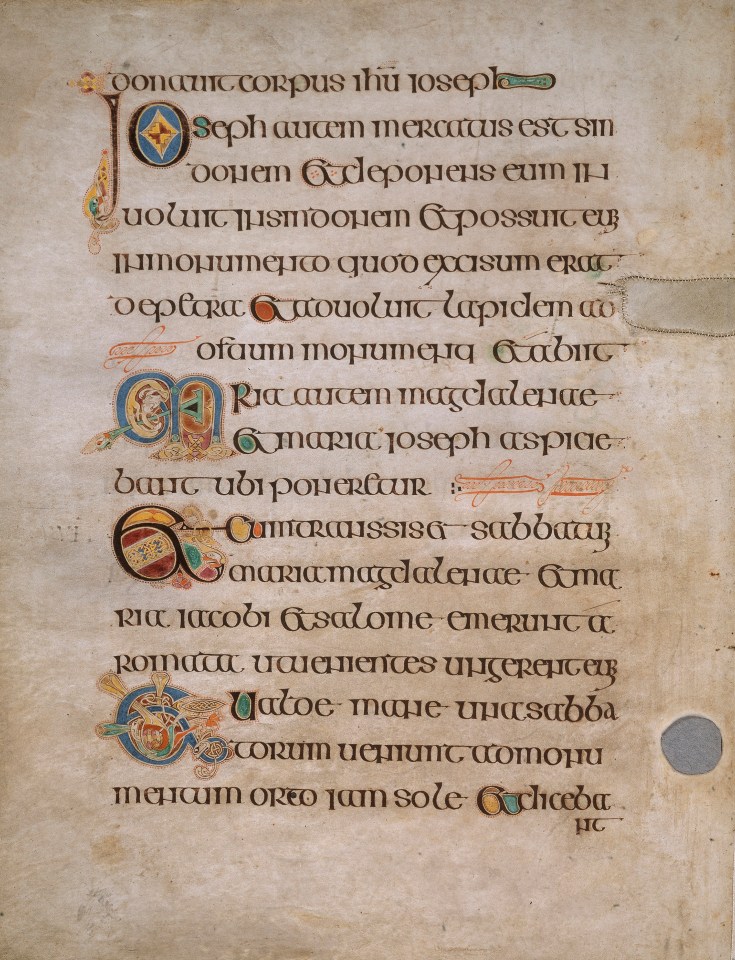 donauit corpus ihū ioseph
Ioseph autem mercatus est sin
donem et deponens eum in
uoluit in sindonem et possuit eū
in monumento quod excisum erat
de petra et aduoluit lapidem ad
ostium monumenti et abiit
Maria autem magdalenae
et maria ioseph aspicie
bant ubi poneretur
Et cum transsisset sabbatū
maria magdalenae et ma
ria iacobi et salome emerunt a
romata ut uenientes ungerent eū
Et ualde mane una sabba
torum ueniunt ad monu
mentum orto iam sole et diceba
nt